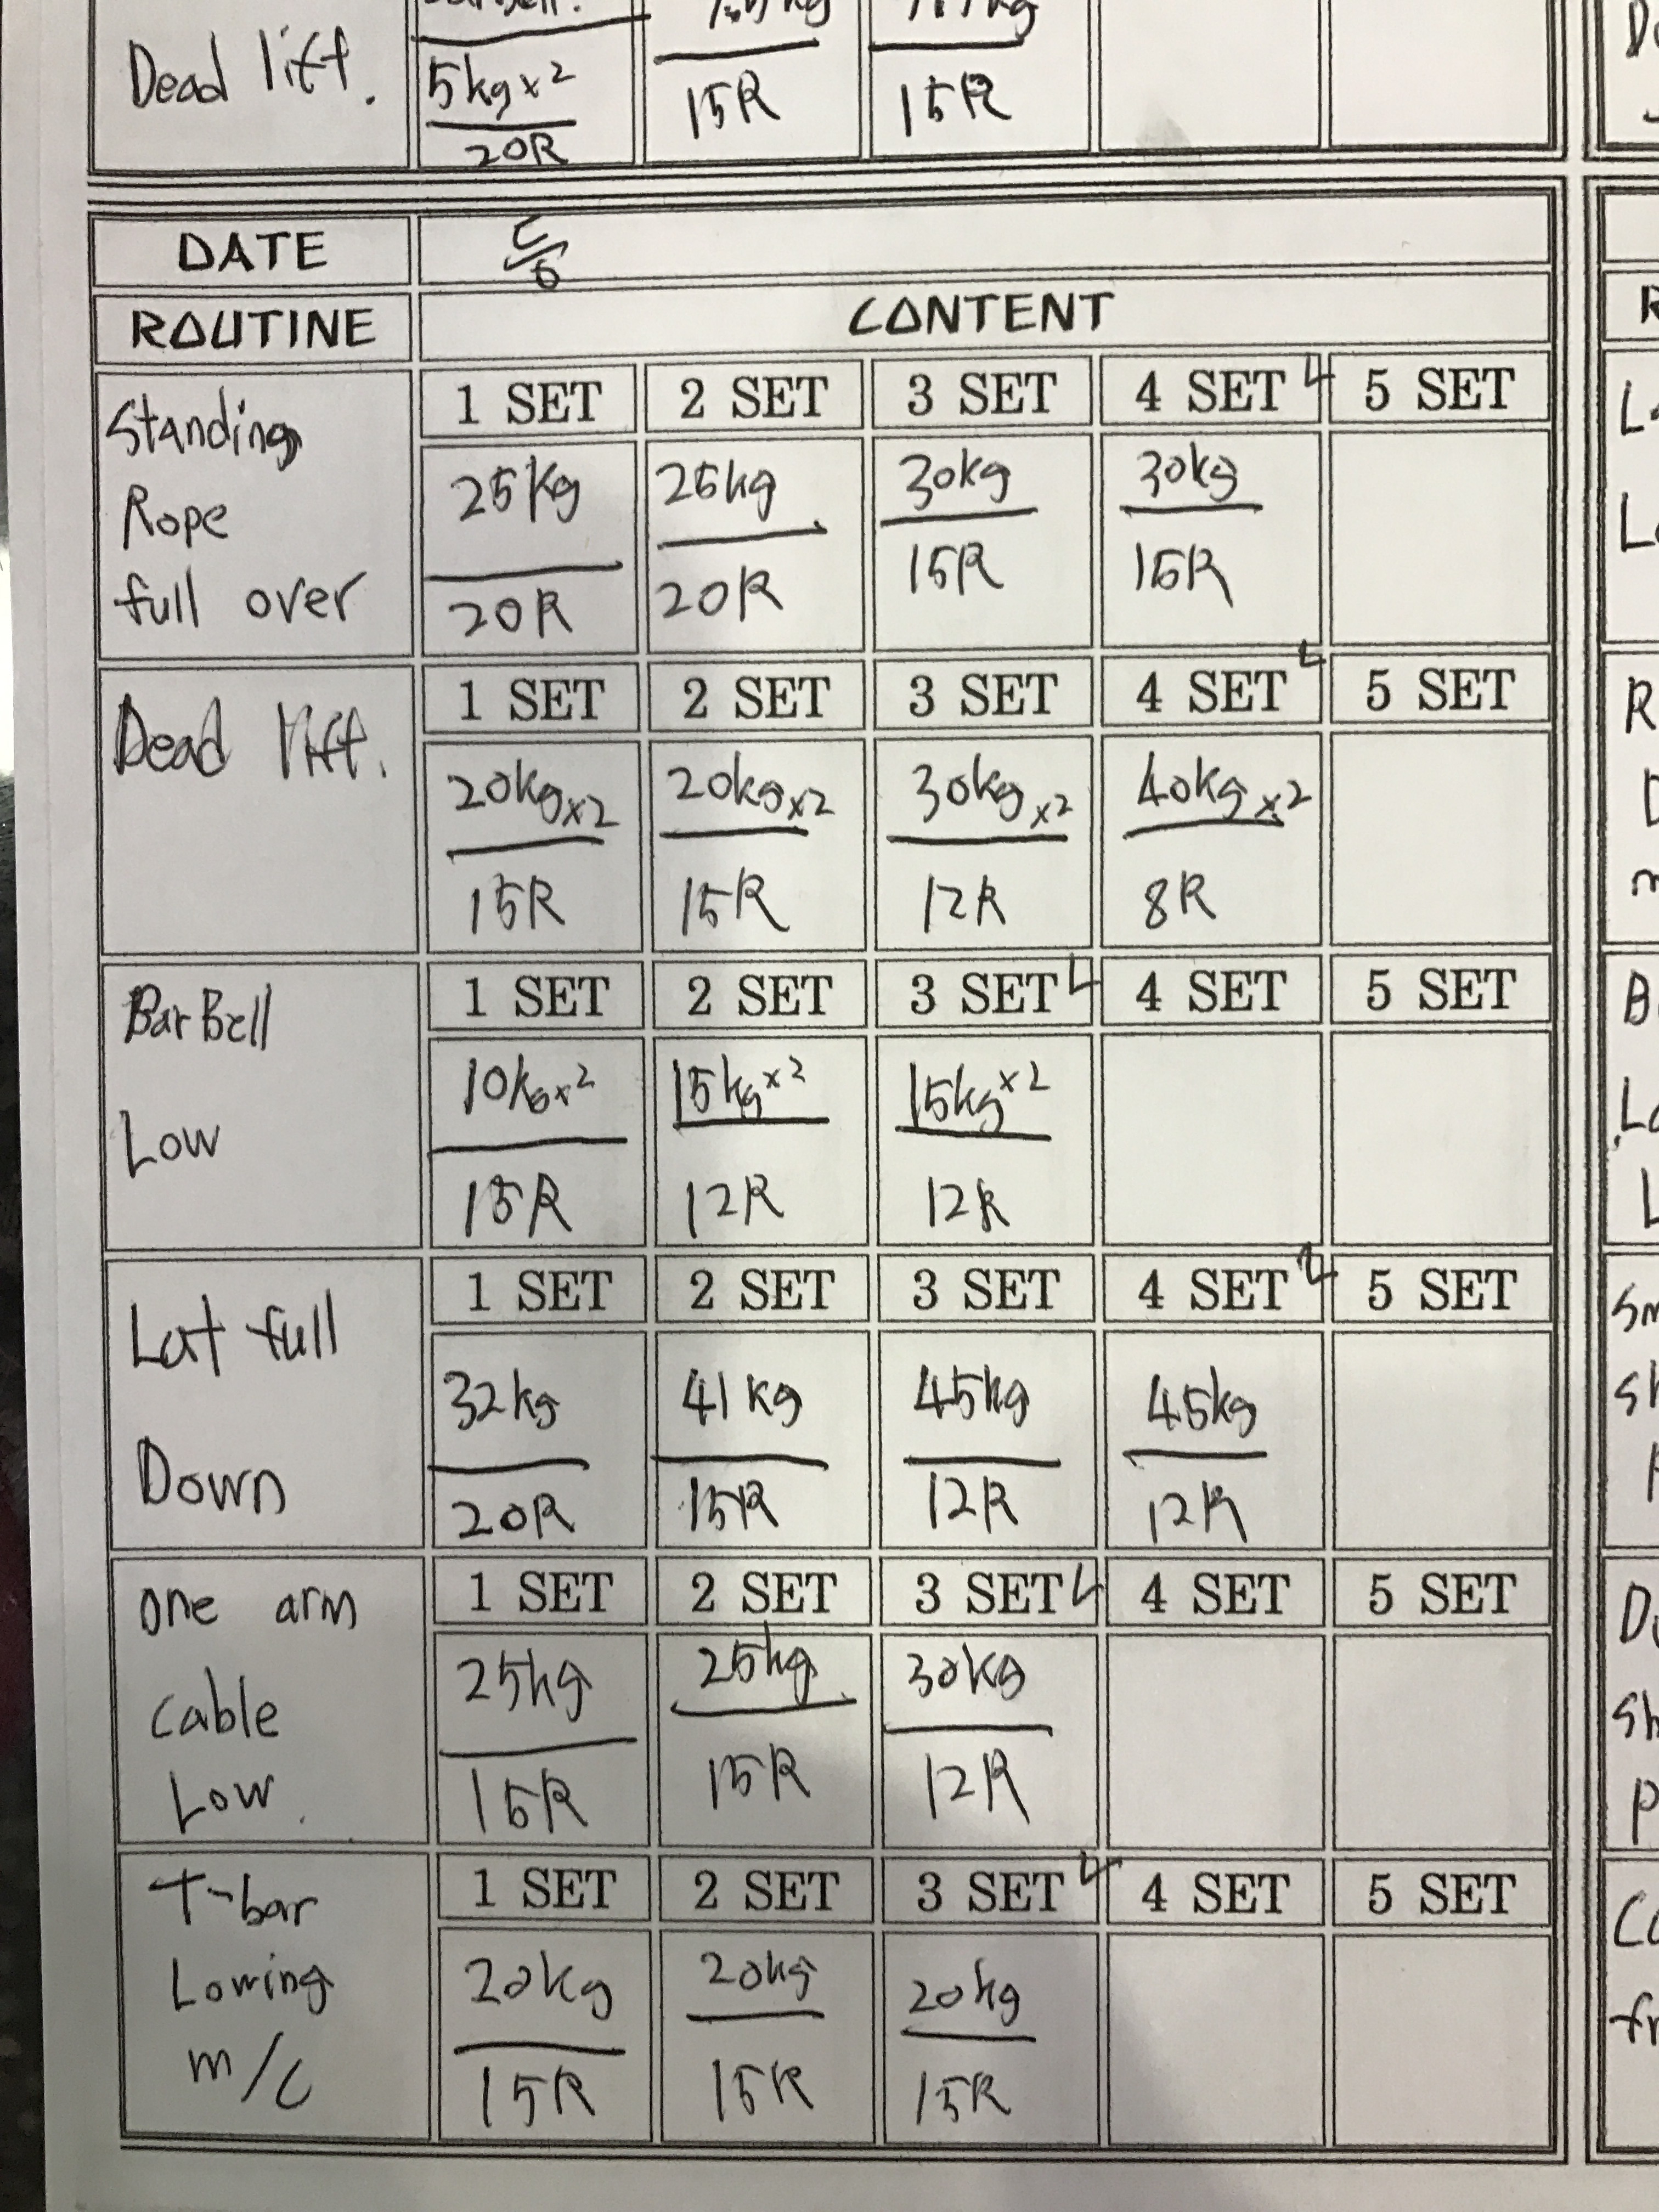 Dead lift.
5kg x2
20R
15R
15R
DATE
5/6
ROUTINE
CONTENT
Standing
Rope
full over
1 SET
2 SET
3 SET
4 SET
5 SET
25kg
20R
25kg
20R
30kg
15R
30kg
15R
Dead lift.
1 SET
2 SET
3 SET
4 SET
5 SET
20kg x2
15R
20kg x2
15R
30kg x2
12R
40kg x2
8R
BarBell
Low
1 SET
2 SET
3 SET
4 SET
5 SET
10kg x2
15R
15kg x2
12R
15kg x2
12R
Lat full
Down
1 SET
2 SET
3 SET
4 SET
5 SET
32kg
20R
41kg
15R
45kg
12R
45kg
12R
one arm
cable
Low.
1 SET
2 SET
3 SET
4 SET
5 SET
25kg
15R
25kg
15R
30kg
12R
T-bar
Lowing
m/c
1 SET
2 SET
3 SET
4 SET
5 SET
20kg
15R
20kg
15R
20kg
15R